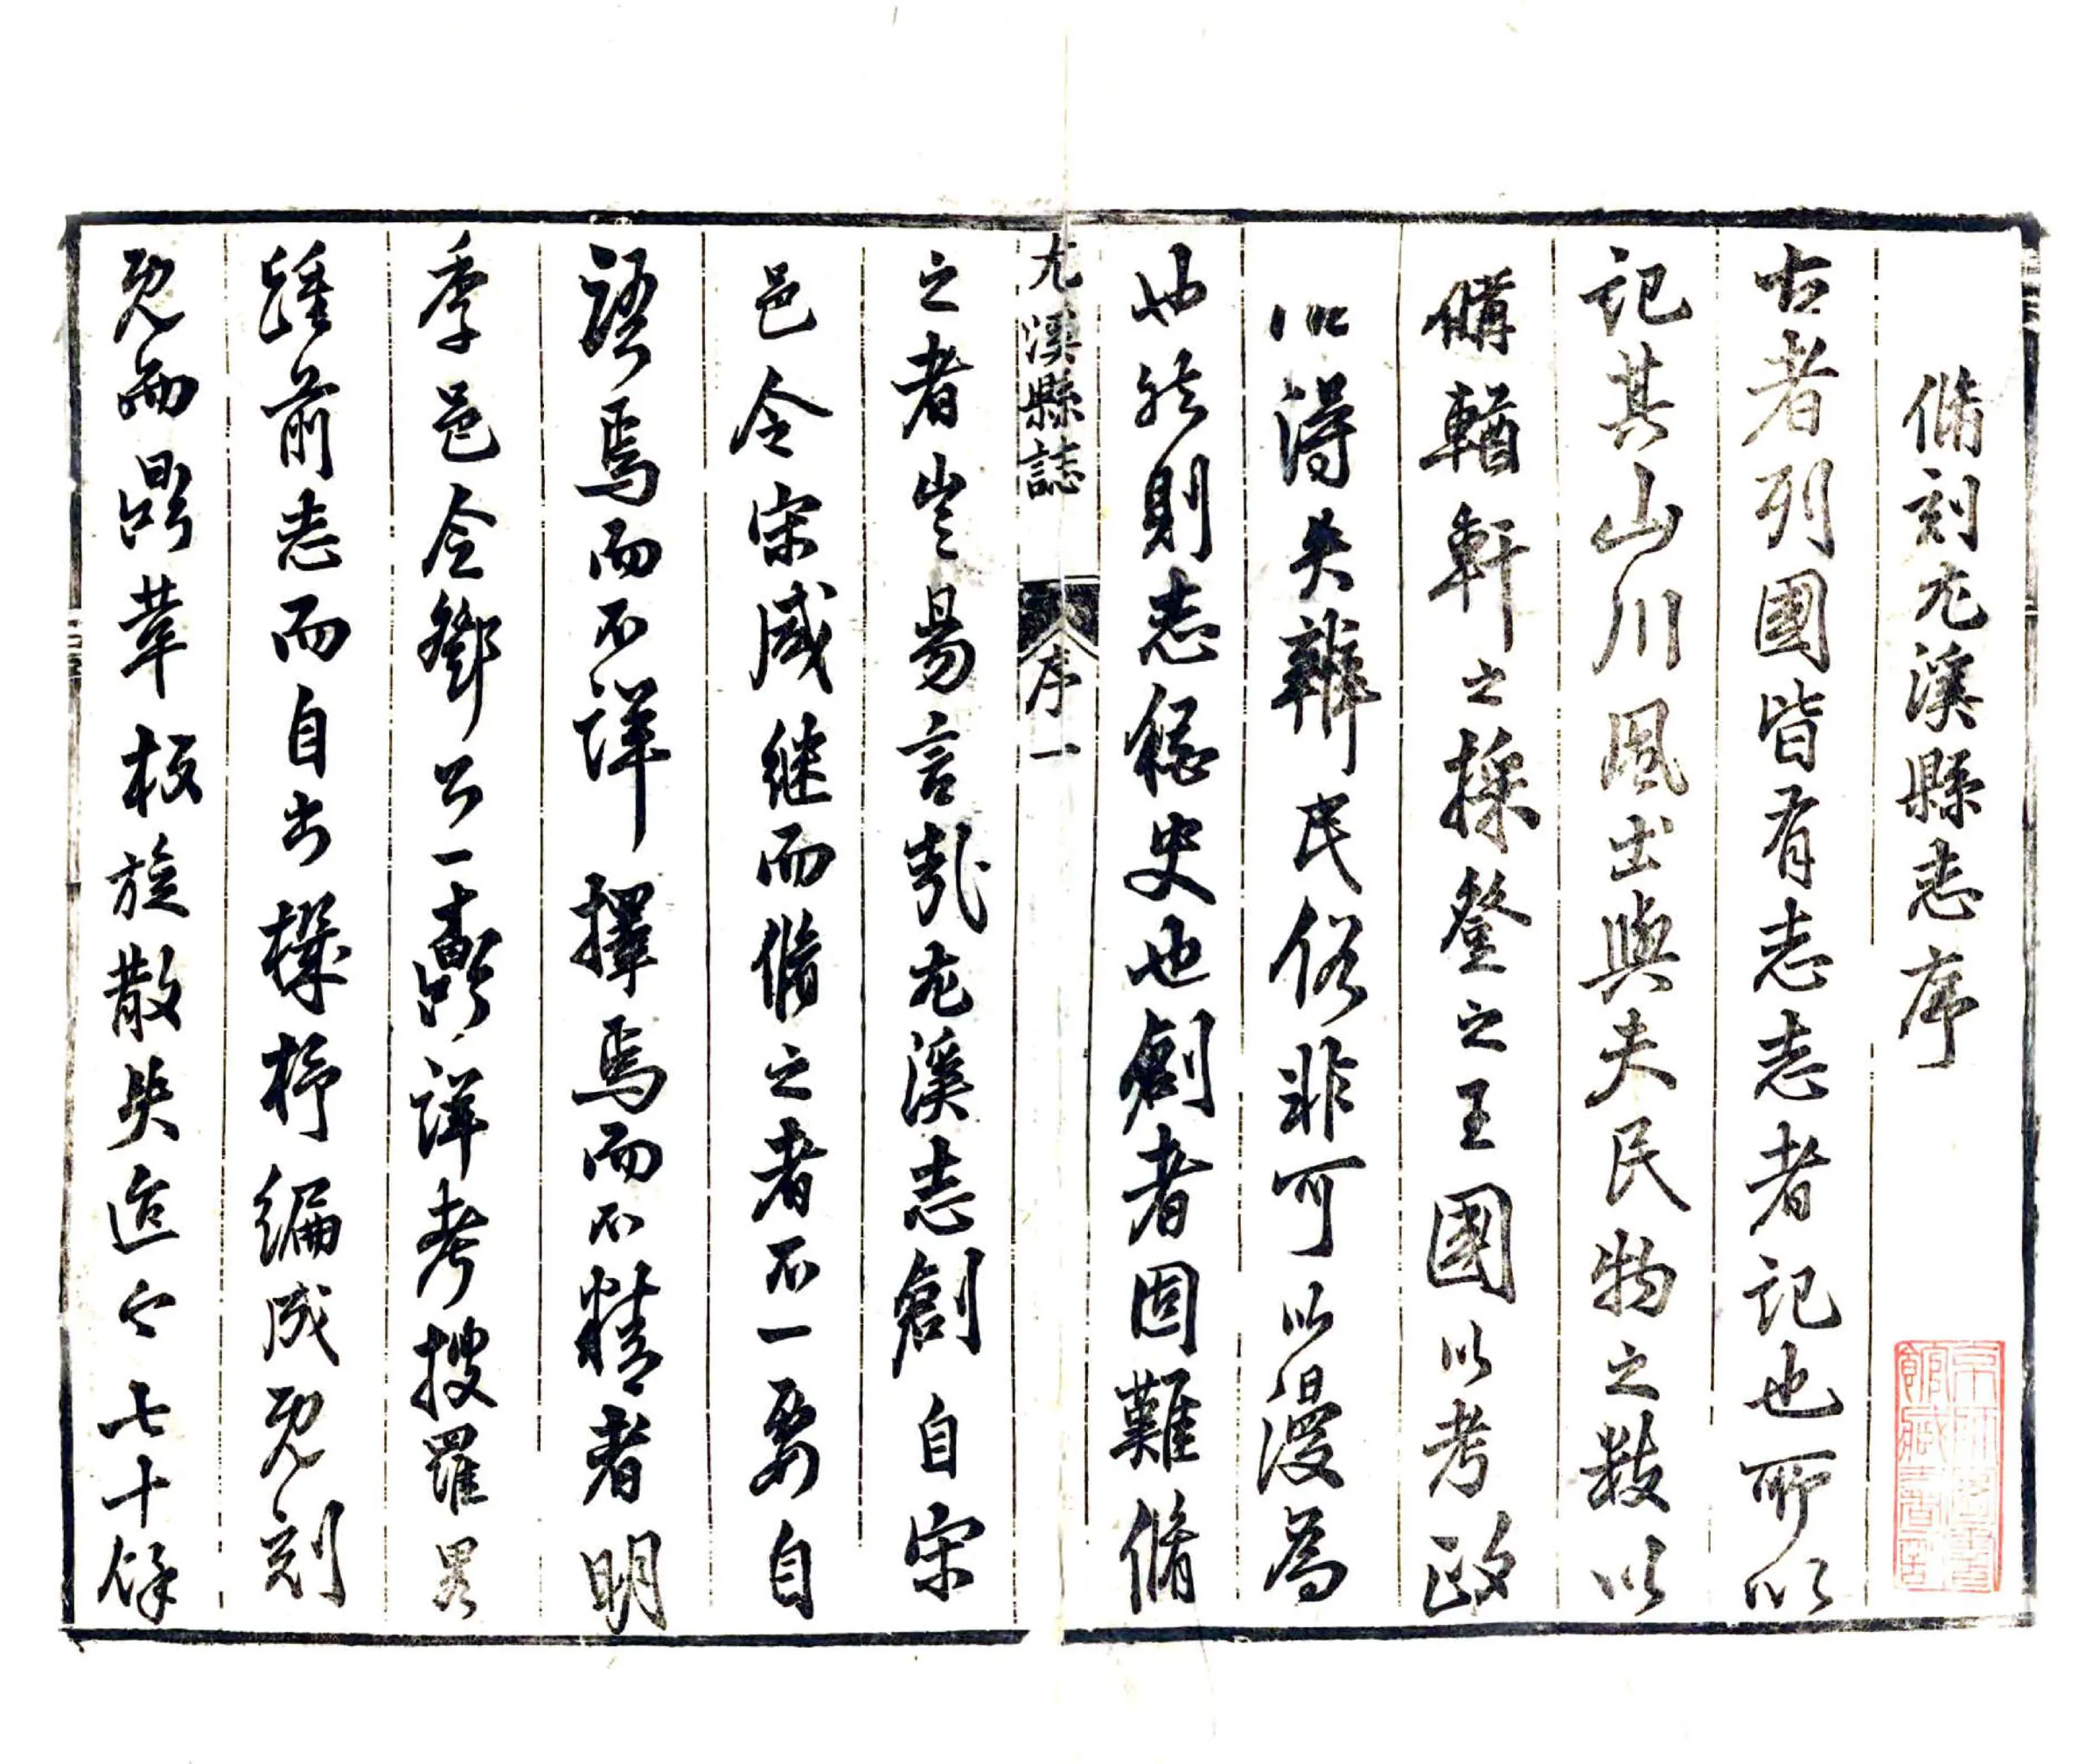 脩刻尤溪縣志序
古者列國皆有志志者記也所以
記其山川風土與夫民物之数以
備輶軒之採登之王國以考政
治淂失辨民俗非可以漫爲
也然則志史也創者固難脩
尤溪縣誌 序一
之者豈易言哉尤溪志創自宋
邑令宋咸继而脩之者不一要自
語焉而不詳擇焉而不精者明
季邑令鄧公一鼒詳考搜羅畧
踵前志而自出機杼編成既刻
既而鼎革板旋散失迄今七十餘
京師圖書館藏書記